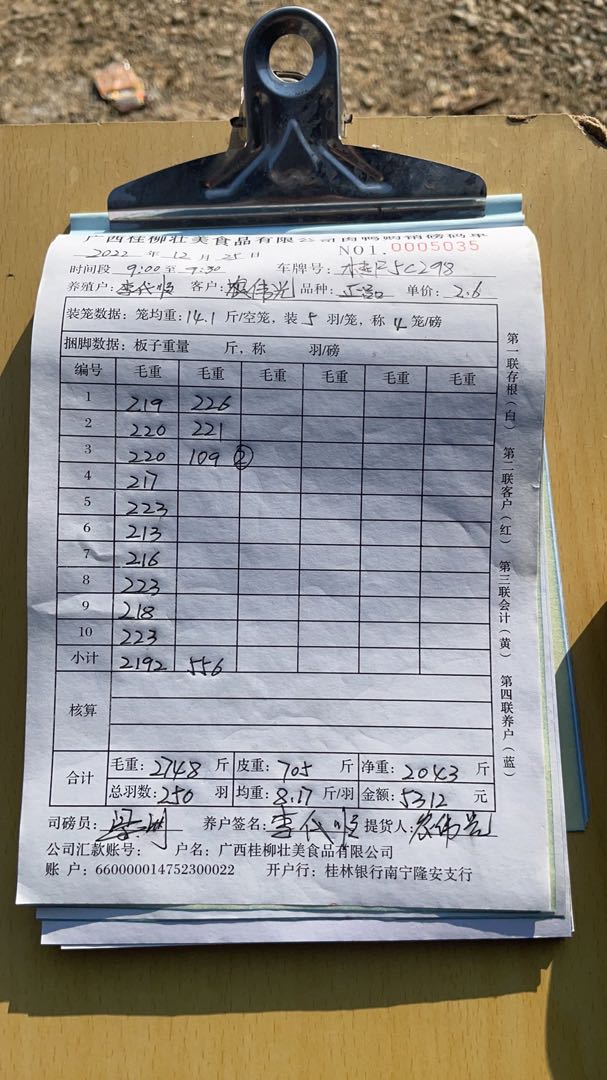 广西桂柳壮美食品有限公司肉鸭购销磅码单
2022 年 12 月 25 日 NO1.0005035
时间段 9:00 至 9:30 车牌号: 5C298
养殖户: 李代顺 客户: 农伟光 品种: 单价: 2.6
装笼数据: 笼均重: 14.1 斤/空笼, 装 5 羽/笼, 称 4 笼/磅
捆脚数据: 板子重量 斤, 称 羽/磅
编号 毛重 毛重 毛重 毛重 毛重 毛重
1 219 226
2 220 221
3 220 109 ②
4 217
5 223
6 213
7 216
8 223
9 218
10 223
小计 2192 556
核算
合计 毛重: 2748 斤 皮重: 705 斤 净重: 2043 斤
总羽数: 250 羽 均重: 8.17 斤/羽 金额: 5312 元
司磅员: 养户签名: 李代顺 提货人: 农伟光
公司汇款账号: 户名: 广西桂柳壮美食品有限公司
账 户: 660000014752300022 开户行: 桂林银行南宁隆安支行
第一联存根(白) 第二联客户(红) 第三联会计(黄) 第四联养户(蓝)